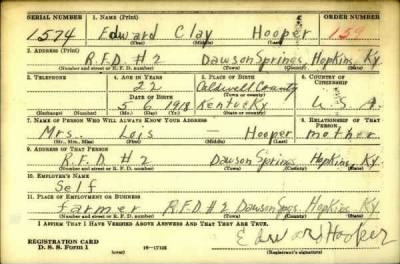 SERIAL NUMBER 1. NAME (Print) ORDER NUMBER
1574 Edward Clay Hooper 159
(First) (Middle) (Last)
2. ADDRESS (Print)
R.F.D. #2 Dawson Springs, Hopkins, Ky.
(Number and street or R. F. D. number) (Town) (County) (State)
3. TELEPHONE 4. AGE IN YEARS 5. PLACE OF BIRTH 6. COUNTRY OF CITIZENSHIP
22 Caldwell County
DATE OF BIRTH (Town or county)
5 6 1918 Kentucky U.S.A.
(Exchange) (Number) (Mo.) (Day) (Yr.) (State or country)
7. NAME OF PERSON WHO WILL ALWAYS KNOW YOUR ADDRESS 8. RELATIONSHIP OF THAT PERSON
Mrs. Lois — Hooper mother
(Mr., Mrs., Miss) (First) (Middle) (Last)
9. ADDRESS OF THAT PERSON
R.F.D. #2 Dawson Springs, Hopkins, Ky.
(Number and street or R. F. D. number) (Town) (County) (State)
10. EMPLOYER'S NAME
Self
11. PLACE OF EMPLOYMENT OR BUSINESS
farmer R.F.D. #2 Dawson Spgs. Hopkins, Ky.
(Number and street or R. F. D. number) (Town) (County) (State)
I AFFIRM THAT I HAVE VERIFIED ABOVE ANSWERS AND THAT THEY ARE TRUE.
Edward Hooper
REGISTRATION CARD
D. S. S. Form 1 (over) (Registrant's signature)